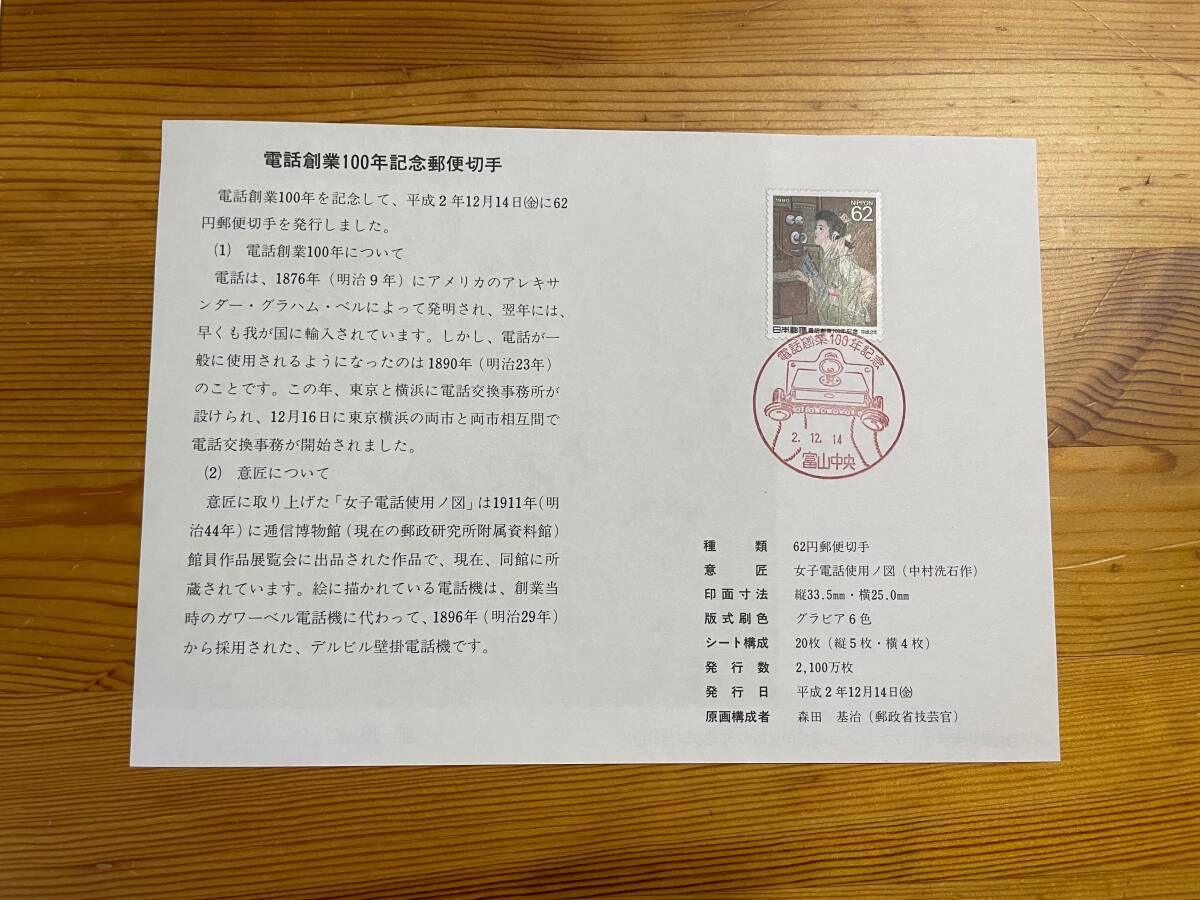 電話創業100年記念郵便切手
電話創業100年を記念して、平成2年12月14日㈮に62
円郵便切手を発行しました。
(1) 電話創業100年について
電話は、1876年(明治9年)にアメリカのアレキサ
ンダー・グラハム・ベルによって発明され、翌年には、
早くも我が国に輸入されています。しかし、電話が一
般に使用されるようになったのは1890年(明治23年)
のことです。この年、東京と横浜に電話交換事務所が
設けられ、12月16日に東京横浜の両市と両市相互間で
電話交換事務が開始されました。
(2) 意匠について
意匠に取り上げた「女子電話使用ノ図」は1911年(明
治44年)に逓信博物館(現在の郵政研究所附属資料館)
館員作品展覧会に出品された作品で、現在、同館に所
蔵されています。絵に描かれている電話機は、創業当
時のガワーベル電話機に代わって、1896年(明治29年)
から採用された、デルビル壁掛電話機です。
1990 NIPPON 62
日本郵便 電話創業100年記念 平成2年
電話創業100年記念
2.12.14
富山中央
種類 62円郵便切手
意匠 女子電話使用ノ図(中村洗石作)
印面寸法 縦33.5mm・横25.0mm
版式刷色 グラビア6色
シート構成 20枚(縦5枚・横4枚)
発行数 2,100万枚
発行日 平成2年12月14日㈮
原画構成者 森田 基治(郵政省技芸官)